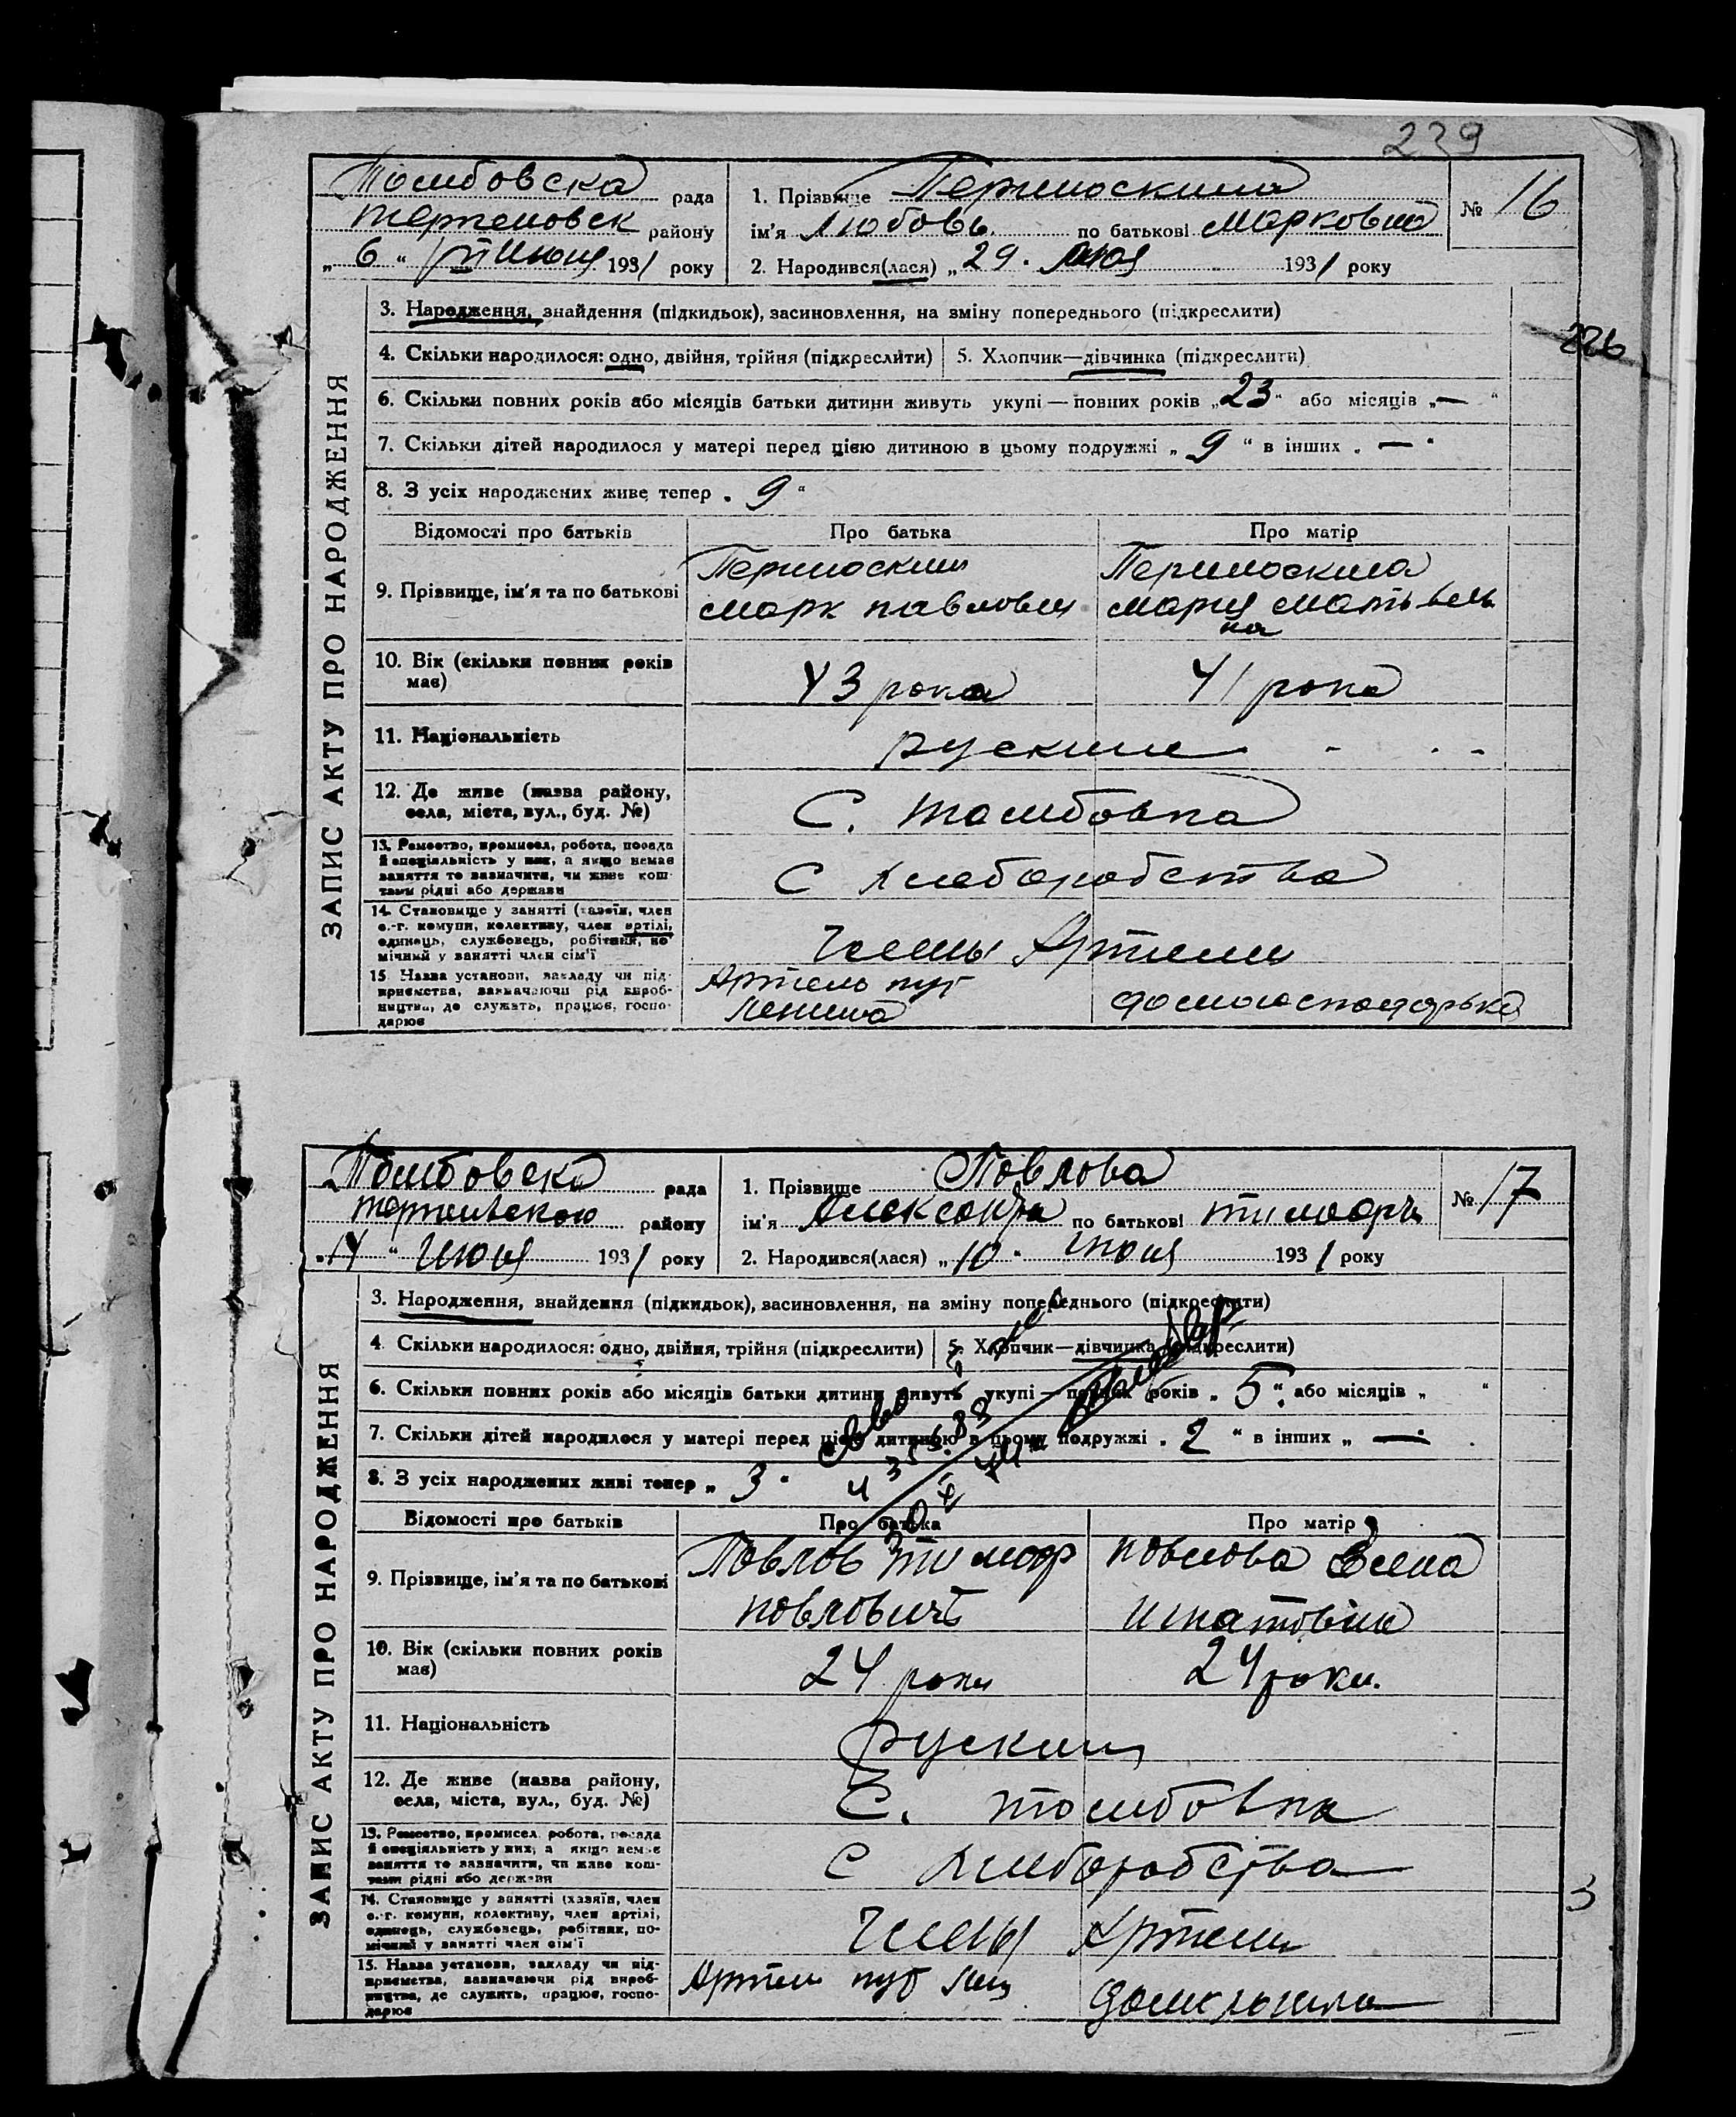 239
Тамбовска рада
района району
„ 6 “ Июня 1931 року
1. Прізвище
ім'я Любовь по батькові Марковна
№ 16
2. Народився(лася) „ 29 . мая 1931 року
ЗАПИС АКТУ ПРО НАРОДЖЕННЯ
3. Народження, знайдення (підкидьок), засиновлення, на зміну попереднього (підкреслити)
226
4. Скільки народилося: одно, двійня, трійня (підкреслити) 5. Хлопчик—дівчинка (підкреслити)
6. Скільки повних років або місяців батьки дитини живуть укупі—повних років „23“ або місяців „—“
7. Скільки дітей народилося у матері перед цією дитиною в цьому подружжі „ 9 “ в інших „ — “
8. З усіх народжених живе тепер „ 9 “
Відомості про батьків Про батька Про матір
9. Прізвище, ім'я та по батькові
Марк Павлович
Мария
на
10. Вік (скільки повних років має) 43 рока 41 рока
11. Національність руские
12. Де живе (назва району, села, міста, вул., буд. №) С. Тамбовка
13. Ремество, промисел, робота, посада
й спеціяльність у них, а якщо немає
заняття то зазначити, чи живе кош-
тами рідні або держави
С хлеборобства
14. Становище у занятті (хазяїн, член
с.-г. комуни, колективу, член артілі,
одинець, службовець, робітник, по-
мічний у занятті член сім'ї
Члены Артели
15. Назва установи, закладу чи під-
приємства, зазначаючи рід вироб-
ництва, де служить, працює, госпо-
дарює
Артель пут
Ленина
домогосподарька
Томбовска рада
району
„ 14 “ Июня 1931 року
1. Прізвище Повлова
ім'я Александра по батькові
№ 17
2. Народився(лася) „ 10 “ Июня 1931 року
ЗАПИС АКТУ ПРО НАРОДЖЕННЯ
3. Народження, знайдення (підкидьок), засиновлення, на зміну попереднього (підкреслити)
4. Скільки народилося: одно, двійня, трійня (підкреслити) 5. Хлопчик—дівчинка (підкреслити)
6. Скільки повних років або місяців батьки дитини живуть укупі—повних років „ 5 “ або місяців „ “
7. Скільки дітей народилося у матері перед цією дитиною в цьому подружжі „ 2 “ в інших „ — “
8. З усіх народжених живі тепер „ 3 “
Відомості про батьків Про батька Про матір
9. Прізвище, ім'я та по батькові
Повлов Тимоф
Повлович
Повлова Елена
Игнатовна
10. Вік (скільки повних років має) 24 роки 24 роки.
11. Національність руским
12. Де живе (назва району, села, міста, вул., буд. №) С. Томбовка
13. Ремество, промисел, робота, посада
й спеціяльність у них, а якщо немає
заняття то зазначити, чи живе кош-
тами рідні або держави
С хлеборобства
14. Становище у занятті (хазяїн, член
с.-г. комуни, колективу, член артілі,
одинець, службовець, робітник, по-
мічний у занятті член сім'ї
Члены Артели
3
15. Назва установи, закладу чи під-
приємства, зазначаючи рід вироб-
ництва, де служить, працює, госпо-
дарює
Артель пут